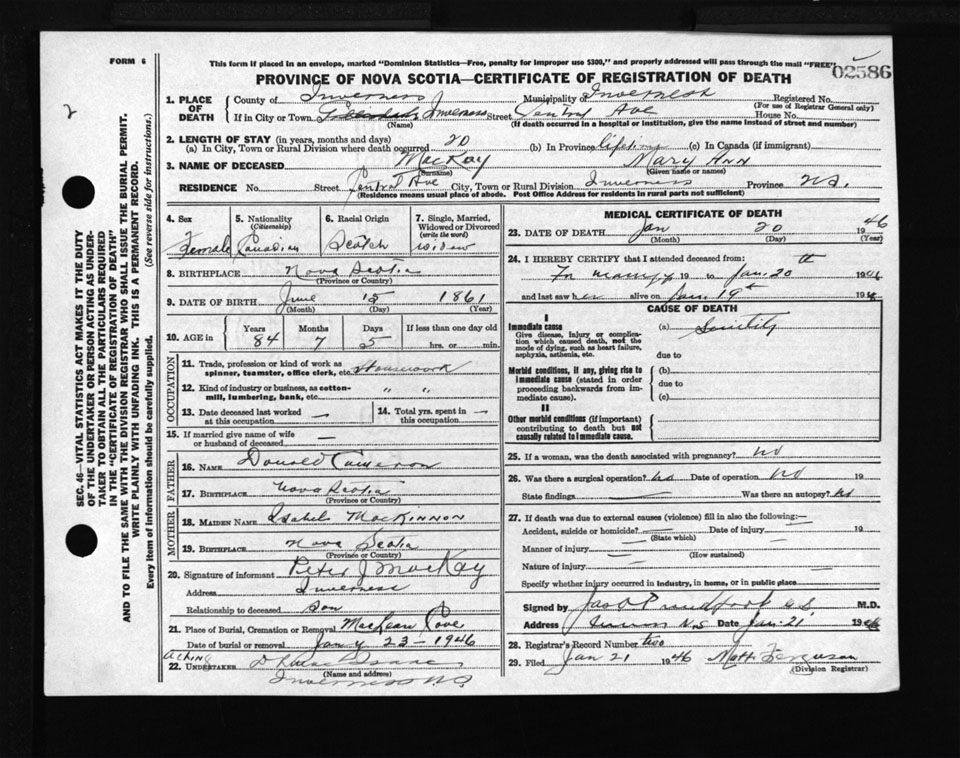 FORM 6
This form if placed in an envelope, marked "Dominion Statistics—Free, penalty for improper use $300," and properly addressed will pass through the mail "FREE"
PROVINCE OF NOVA SCOTIA—CERTIFICATE OF REGISTRATION OF DEATH
02586
2
1. PLACE OF DEATH
County of Inverness Municipality of Inverness Registered No.
(For use of Registrar General only)
If in City or Town Inverness Street Central Ave House No.
(Name) (If death occurred in a hospital or institution, give the name instead of street and number)
2. LENGTH OF STAY (in years, months and days)
(a) In City, Town or Rural Division where death occurred 20 (b) In Province lifetime (c) In Canada (if immigrant)
3. NAME OF DECEASED MacKay Mary Ann
(Surname) (Given name or names)
RESIDENCE No. Street Central Ave City, Town or Rural Division Inverness Province N.S.
(Residence means usual place of abode. Post Office Address for residents in rural parts not sufficient)
4. Sex Female
5. Nationality (Citizenship) Canadian
6. Racial Origin Scotch
7. Single, Married, Widowed or Divorced (write the word) widow
8. BIRTHPLACE Nova Scotia
(Province or Country)
9. DATE OF BIRTH June 15 1861
(Month) (Day) (Year)
10. AGE in Years 84 Months 7 Days 5 If less than one day old hrs. or min.
OCCUPATION
11. Trade, profession or kind of work as spinner, teamster, office clerk, etc. Housework
12. Kind of industry or business, as cotton-mill, lumbering, bank, etc. " "
13. Date deceased last worked at this occupation —
14. Total yrs. spent in this occupation —
15. If married give name of wife or husband of deceased —
FATHER
16. NAME Donald Cameron
17. BIRTHPLACE Nova Scotia
(Province or Country)
MOTHER
18. MAIDEN NAME Isabel MacKinnon
19. BIRTHPLACE Nova Scotia
(Province or Country)
20. Signature of informant Peter J MacKay
Address Inverness
Relationship to deceased Son
21. Place of Burial, Cremation or Removal MacLean Cove
Date of burial or removal Jany 23 - 1946
Acting
22. UNDERTAKER Isaac
(Name and address)
Inverness N.S.
MEDICAL CERTIFICATE OF DEATH
23. DATE OF DEATH Jan 20 1946
(Month) (Day) (Year)
24. I HEREBY CERTIFY that I attended deceased from: th
19 to Jan. 20 1946
and last saw her alive on Jan. 19th 194
CAUSE OF DEATH
I
Immediate cause
Give disease, injury or complication which caused death, not the mode of dying, such as heart failure, asphyxia, asthenia, etc.
(a) Senility
due to
Morbid conditions, if any, giving rise to immediate cause (stated in order proceeding backwards from immediate cause).
(b)
due to
(c)
II
Other morbid conditions (if important) contributing to death but not causally related to immediate cause.
25. If a woman, was the death associated with pregnancy? no
26. Was there a surgical operation? no Date of operation no 19
State findings — Was there an autopsy? no
27. If death was due to external causes (violence) fill in also the following: —
Accident, suicide or homicide? — Date of injury — 19
(State which)
Manner of injury —
(How sustained)
Nature of injury —
Specify whether injury occurred in industry, in home, or in public place
Signed by M.D.
Address N.S Date Jan. 21 19
28. Registrar's Record Number two
29. Filed Jan 21 1946 Matt Ferguson
(Division Registrar)
SEC. 46—VITAL STATISTICS ACT MAKES IT THE DUTY
OF THE UNDERTAKER OR PERSON ACTING AS UNDERTAKER
TO OBTAIN ALL THE PARTICULARS REQUIRED
IN THE "CERTIFICATE OF REGISTRATION OF DEATH"
AND TO FILE THE SAME WITH THE DIVISION REGISTRAR WHO SHALL ISSUE THE BURIAL PERMIT.
WRITE PLAINLY WITH UNFADING INK. THIS IS A PERMANENT RECORD.
Every item of information should be carefully supplied. (See reverse side for instructions.)